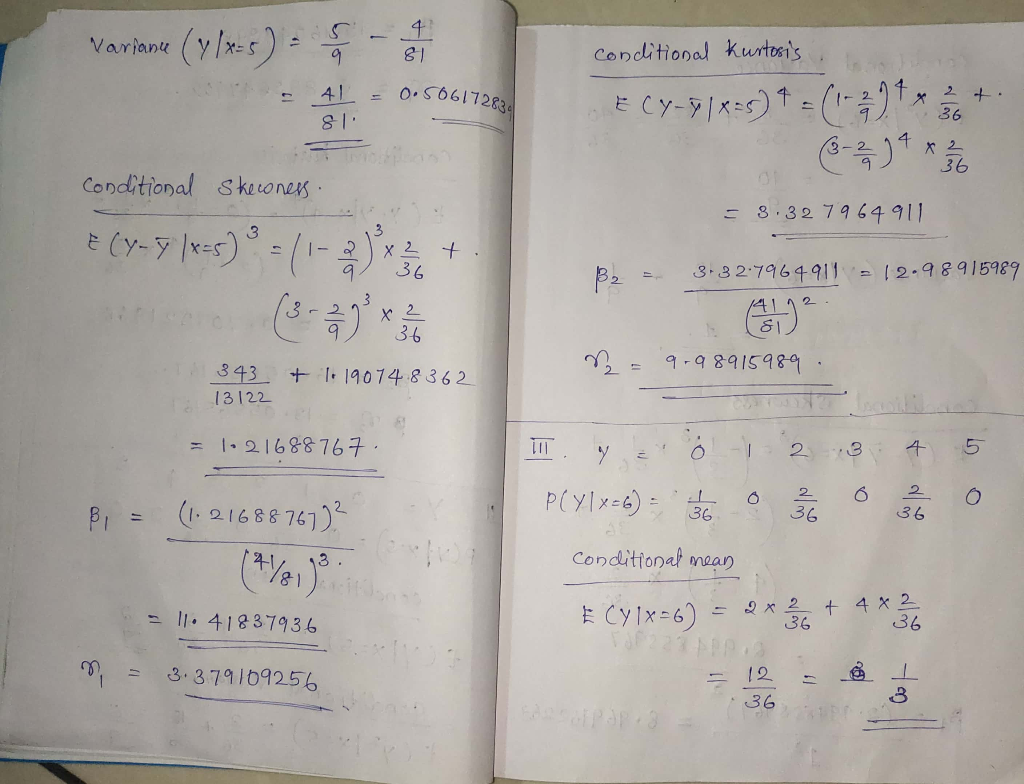 Variance (Y/X=5) = 5/9 - 4/81
= 41/81. = 0.506172839
Conditional Skewness.
E(Y-ȳ/X=5)³ = (1-2/9)³ × 2/36 + .
(3-2/9)³ × 2/36
343/13122 + 1.190748362
= 1.21688767.
β₁ = (1.21688767)² / (41/81)³.
= 11.41837936
γ₁ = 3.379109256
Conditional Kurtosis
E(Y-ȳ/X=5)⁴ = (1-2/9)⁴ × 2/36 + .
(3-2/9)⁴ × 2/36
= 3.327964911
β₂ = 3.327964911 / (41/81)². = 12.98915989
γ₂ = 9.98915989.
III. Y = 0 1 2 3 4 5
P(Y/X=6) = 1/36 0 2/36 0 2/36 0
Conditional mean
E(Y/X=6) = 2 × 2/36 + 4 × 2/36
= 12/36 = 1/3